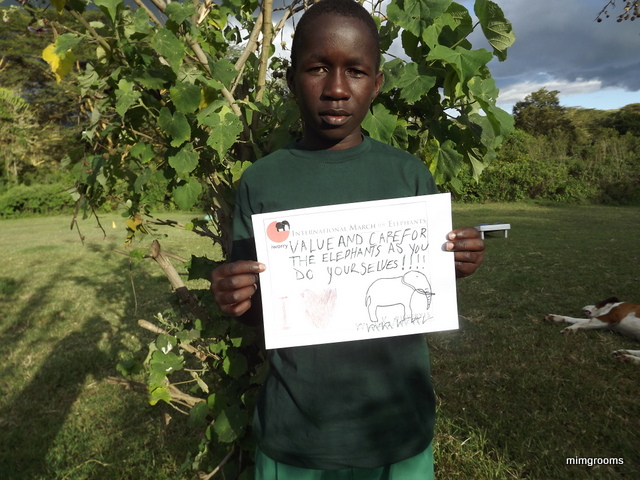 INTERNATIONAL MARCH FOR ELEPHANTS
iworry
VALUE AND CARE FOR
THE ELEPHANTS AS YOU
DO YOURSELVES!!!!
I
mimgrooms